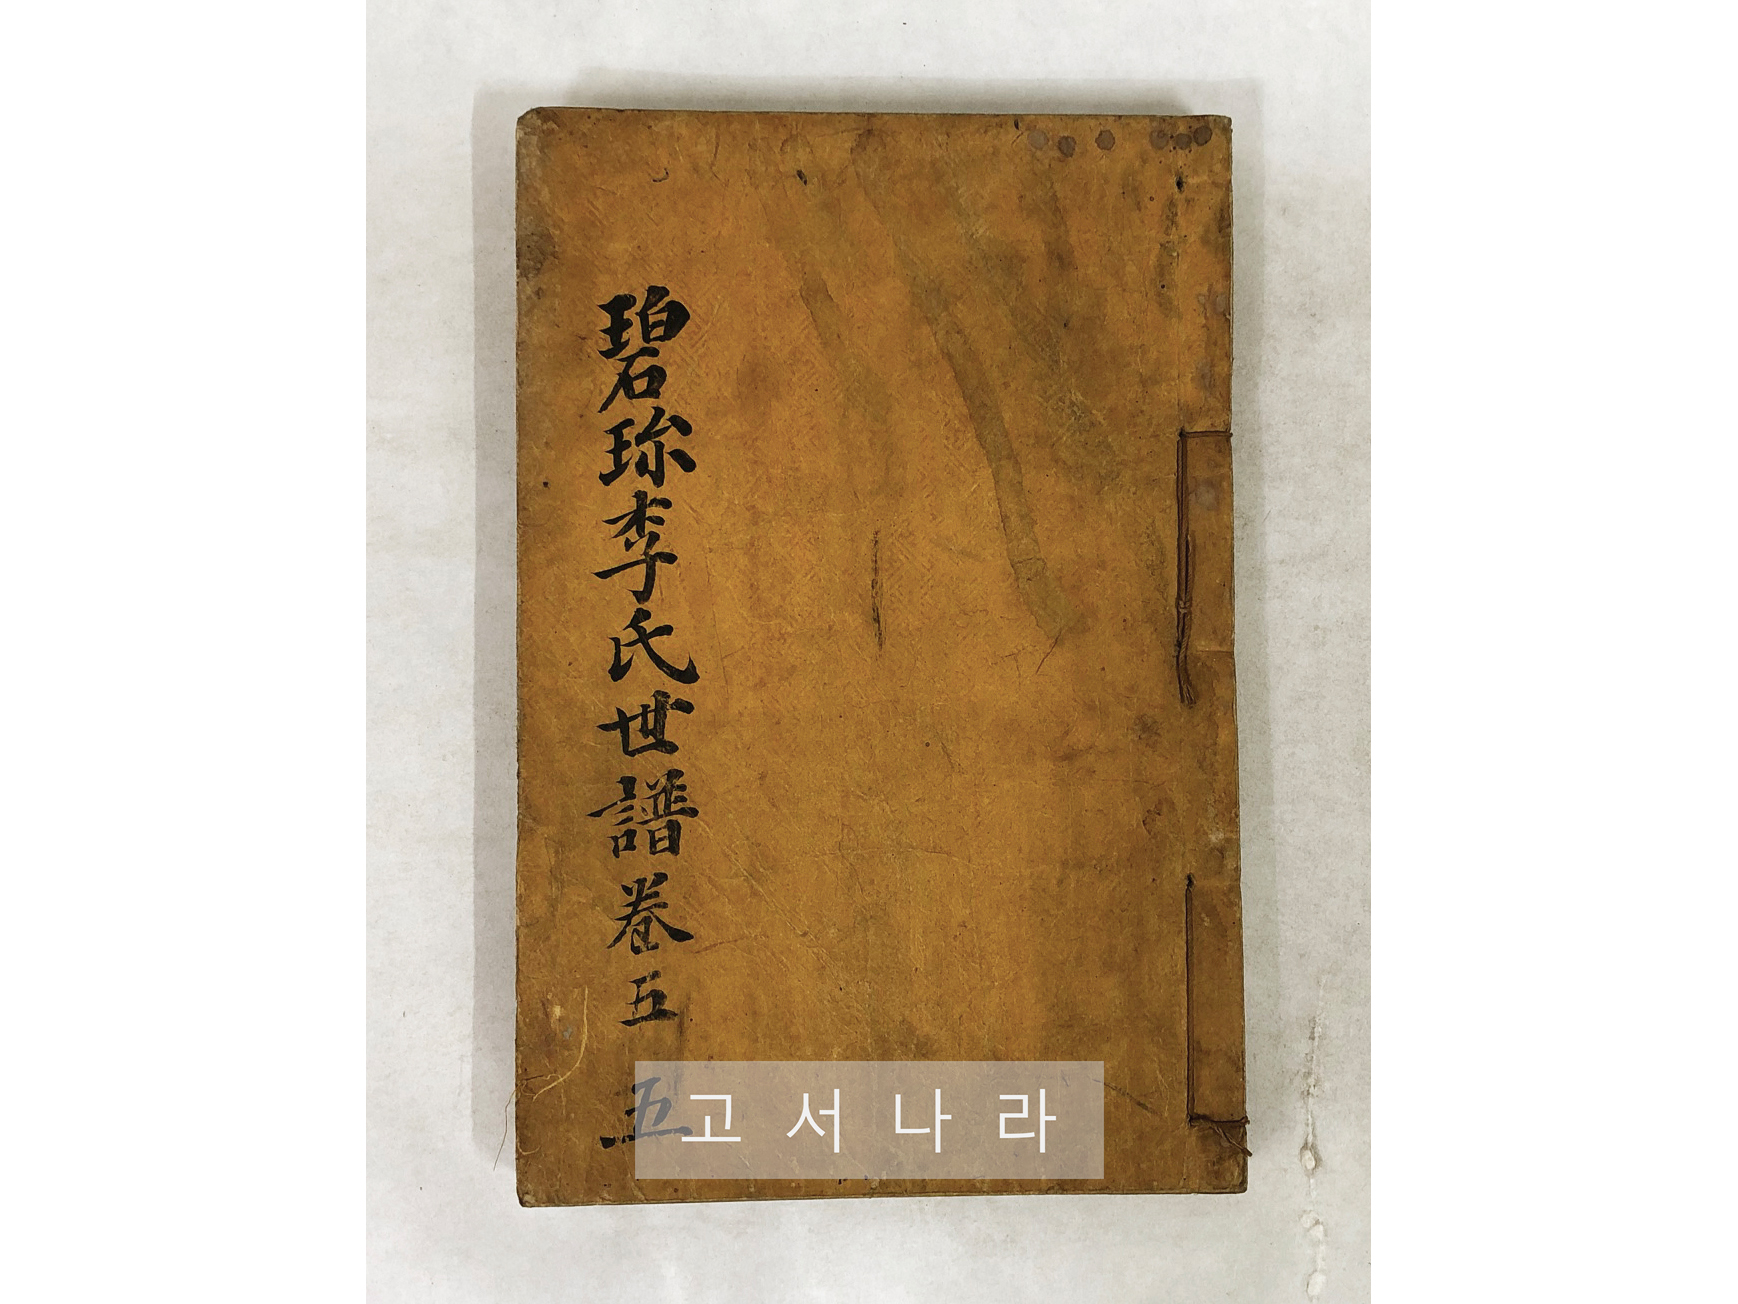 碧珎李氏世譜卷五
五
고서나라